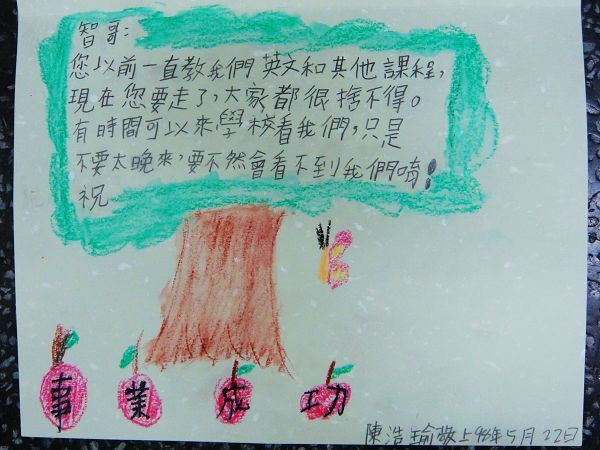 智哥：
您以前一直教我們英文和其他課程，
現在您要走了，大家都很捨不得。
有時間可以來學校看我們，只是
不要太晚來，要不然會看不到我們唷！
祝
事業成功
陳浩瑜敬上98年5月22日